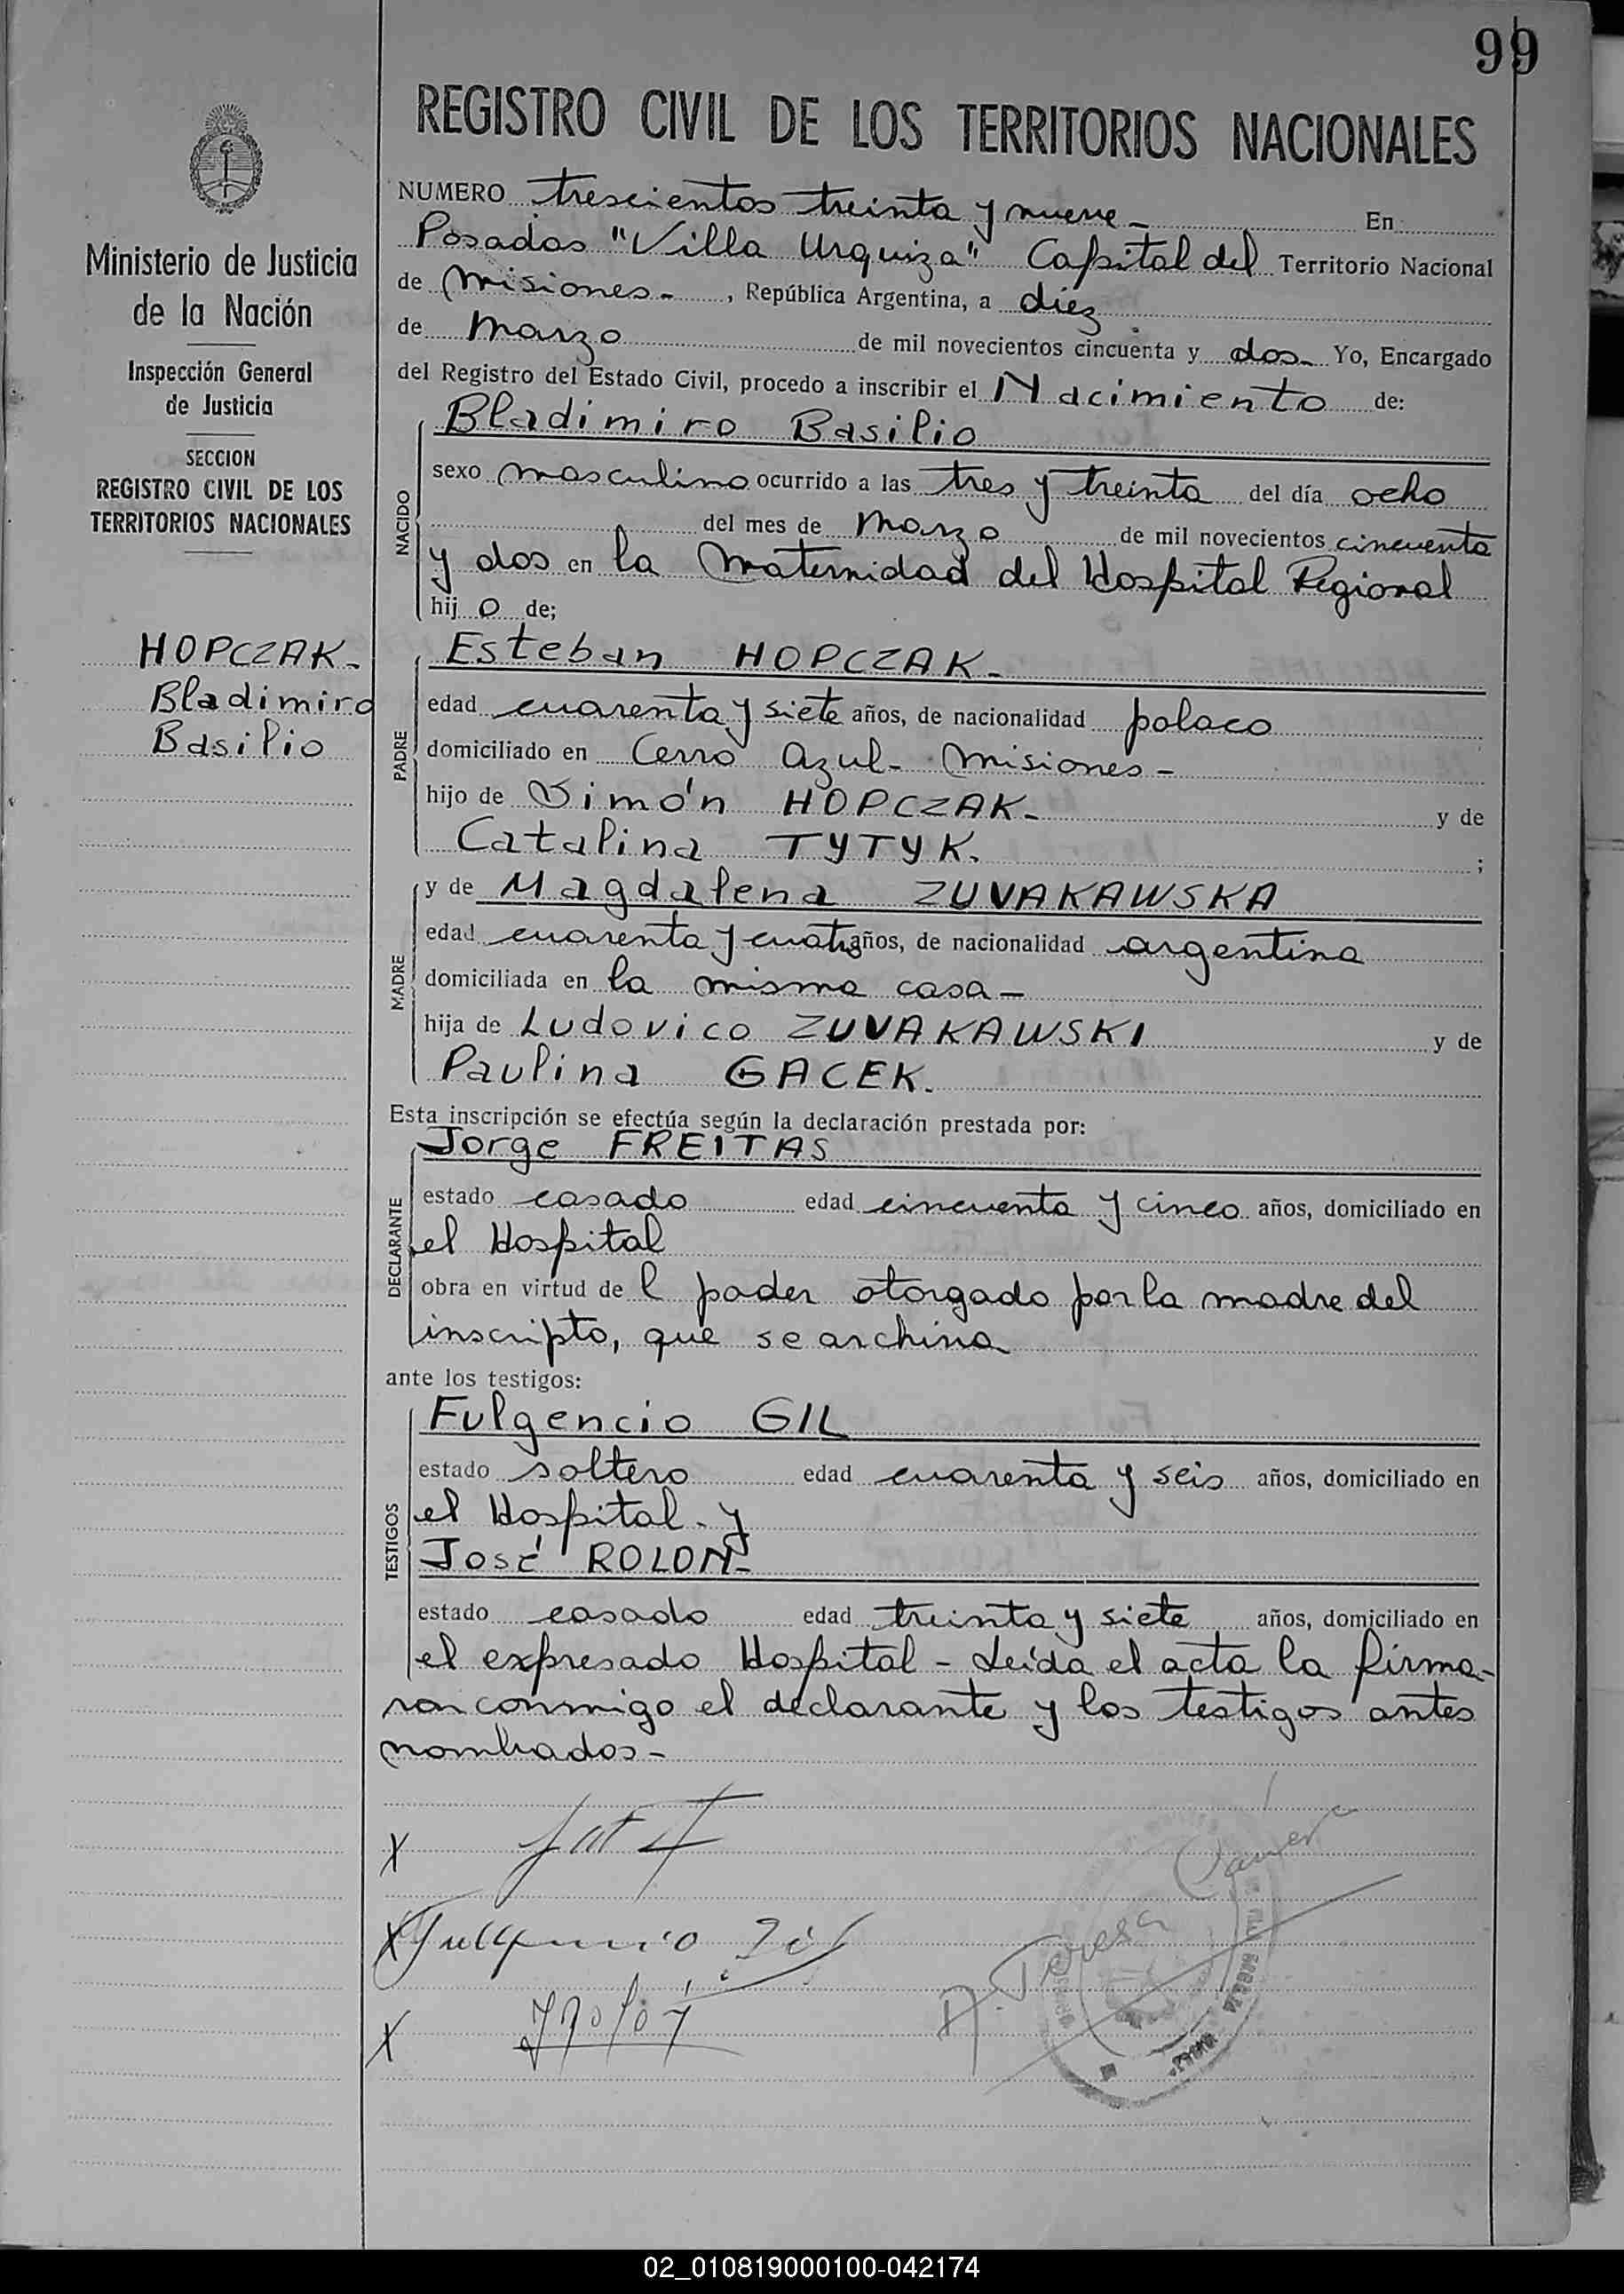 99
REGISTRO CIVIL DE LOS TERRITORIOS NACIONALES
Ministerio de Justicia
de la Nación
Inspección General
de Justicia
SECCION
REGISTRO CIVIL DE LOS
TERRITORIOS NACIONALES
HOPCZAK-
Bladimiro
Basilio
NUMERO trescientos treinta y nueve- En
Posadas "Villa Urquiza" Capital del Territorio Nacional
de Misiones-, República Argentina, a diez
de Marzo de mil novecientos cincuenta y dos- Yo, Encargado
del Registro del Estado Civil, procedo a inscribir el Nacimiento de:
NACIDO
Bladimiro Basilio
sexo masculino ocurrido a las tres y treinta del día ocho
del mes de Marzo de mil novecientos cincuenta
y dos en la Maternidad del Hospital Regional
hijo de;
PADRE
Esteban HOPCZAK-
edad cuarenta y siete años, de nacionalidad polaco
domiciliado en Cerro Azul- Misiones-
hijo de Simón HOPCZAK- y de
Catalina TYTYK. ;
MADRE
y de Magdalena ZUVAKAWSKA
edad cuarenta y cuatro años, de nacionalidad argentina
domiciliada en la misma casa-
hija de Ludovico ZUVAKAWSKI y de
Paulina GACEK.
Esta inscripción se efectúa según la declaración prestada por:
DECLARANTE
Jorge FREITAS
estado casado edad cincuenta y cinco años, domiciliado en
el Hospital
obra en virtud del poder otorgado por la madre del
inscripto, que se archiva
ante los testigos:
TESTIGOS
Fulgencio GIL
estado soltero edad cuarenta y seis años, domiciliado en
el Hospital- y
José ROLON-
estado casado edad treinta y siete años, domiciliado en
el expresado Hospital - Leída el acta la firma-
ron conmigo el declarante y los testigos antes
nombrados-
X
X Fulgencio Gil
X
A. Teresa
02_010819000100-042174